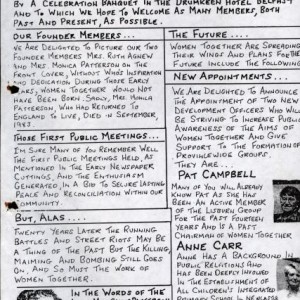 BY A CELEBRATION BANQUET IN THE DRUMKEEN HOTEL BELFAST
AND TO WHICH WE HOPE TO WELCOME AS MANY MEMBERS, BOTH
PAST AND PRESENT, AS POSSIBLE.
OUR FOUNDER MEMBERS...
WE ARE DELIGHTED TO PICTURE OUR TWO
FOUNDER MEMBERS MRS. RUTH AGNEW
AND MRS. MONICA PATTERSON ON THE
FRONT COVER, WITHOUT WHOSE INSPIRATION
AND DEDICATION DURING THOSE EARLY
YEARS, WOMEN TOGETHER WOULD NOT
HAVE BEEN BORN. SADLY, MRS. MONICA
PATTERSON, WHO HAD RETURNED TO
ENGLAND TO LIVE, DIED IN SEPTEMBER,
THOSE FIRST PUBLIC MEETINGS...
I'M SURE MANY OF YOU REMEMBER WELL
THE FIRST PUBLIC MEETINGS HELD, AS
MENTIONED IN THE EARLY NEWSPAPER
CUTTINGS, AND THE ENTHUSIASM
GENERATED, IN A BID TO SECURE LASTING
PEACE AND RECONCILIATION WITHIN OUR
COMMUNITY.
BUT, ALAS....
TWENTY YEARS LATER THE RUNNING
BATTLES AND STREET RIOTS MAY BE
A THING OF THE PAST BUT THE KILLING,
MAIMING AND BOMBING STILL GOES
ON, AND SO MUST THE WORK OF
WOMEN TOGETHER.
IN THE WORDS OF THE
THE FUTURE....
WOMEN TOGETHER ARE SPREADING
THEIR WINGS AND PLANS FOR THE
FUTURE INCLUDE THE FOLLOWING
NEW APPOINTMENTS...
WE ARE DELIGHTED TO ANNOUNCE
THE APPOINTMENT OF TWO NEW
DEVELOPMENT OFFICERS WHO WILL
BE STRIVING TO INCREASE PUBLIC
AWARENESS OF THE AIMS OF
WOMEN TOGETHER AND GIVE
SUPPORT TO THE FORMATION OF
PROVINCEWIDE GROUPS.
THEY ARE...
PAT CAMPBELL
MANY OF YOU WILL ALREADY
KNOW PAT AS SHE HAS
BEEN AN ACTIVE MEMBER
OF THE LISBURN GROUP
FOR THE PAST FOURTEEN
YEARS AND IS A PAST
CHAIRMAN OF WOMEN TOGETHER
ANNE CARR
ANNE HAS A BACKGROUND IN
PUBLIC RELATIONS AND HAS
BEEN DEEPLY INVOLVED
IN THE ESTABLISHMENT OF
ALL CHILDREN'S INTEGRATED
PRIMARY SCHOOL IN NEWCASTLE